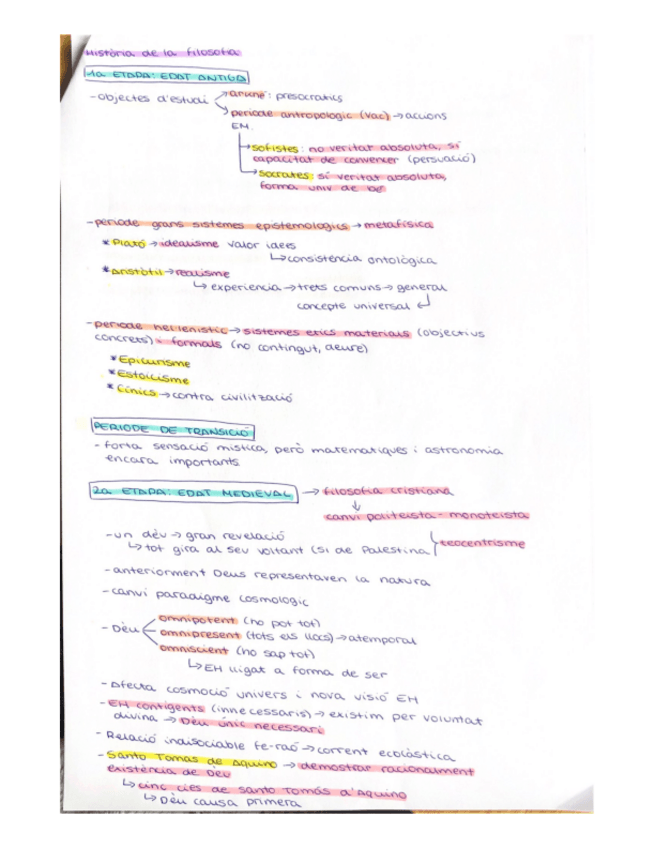 Història de la filosofia
1a ETAPA: EDAT ANTIGA
-objectes d'estudi → arjhé: presocratics
→ període antropologic (Vac) → accions
EH.
→ sofistes: no veritat absoluta, sí
capacitat de convencer (persuació)
→ Socrates: sí veritat absoluta,
forma univ de
-període grans sistemes epistemologics → metafísica
* Plató → idealisme valor idees
↳ consistència ontològica
* Aristòtil → realisme
↳ experiencia → trets comuns → general
concepte universal ↵
-període hel·lenistic → sistemes etics materials (objectius
concrets) i formals (no contingut, deure)
* Epicurisme
* Estoicisme
* Cínics → contra civilització
PERIODE DE TRANSICIÓ
- forta sensació mistica, però matematiques i astronomia
encara importants
2a ETAPA: EDAT MEDIEVAL → filosofia cristiana
↓
canvi politeista - monoteista
-un dèu → gran revelació
↳ tot gira al seu voltant (si de Palestina) teocentrisme
-anteriorment Deus representaven la natura
-canvi paradigme cosmologic
- Dèu
omnipotent (ho pot tot)
omnipresent (tots els llocs) → atemporal
omniscient (ho sap tot)
↳ EH lligat a forma de ser
- Afecta cosmoció univers i nova visió EH
- EH contigents (innecessaris) → existim per voluntat
divina → Dèu únic necessari
- Relació indisociable fe-raó → corrent ecolàstica
- Santo Tomas de Aquino → demostrar racionalment
existència de Dèu
↳ cinc cies de santo Tomás d'Aquino
↳ Dèu causa primera